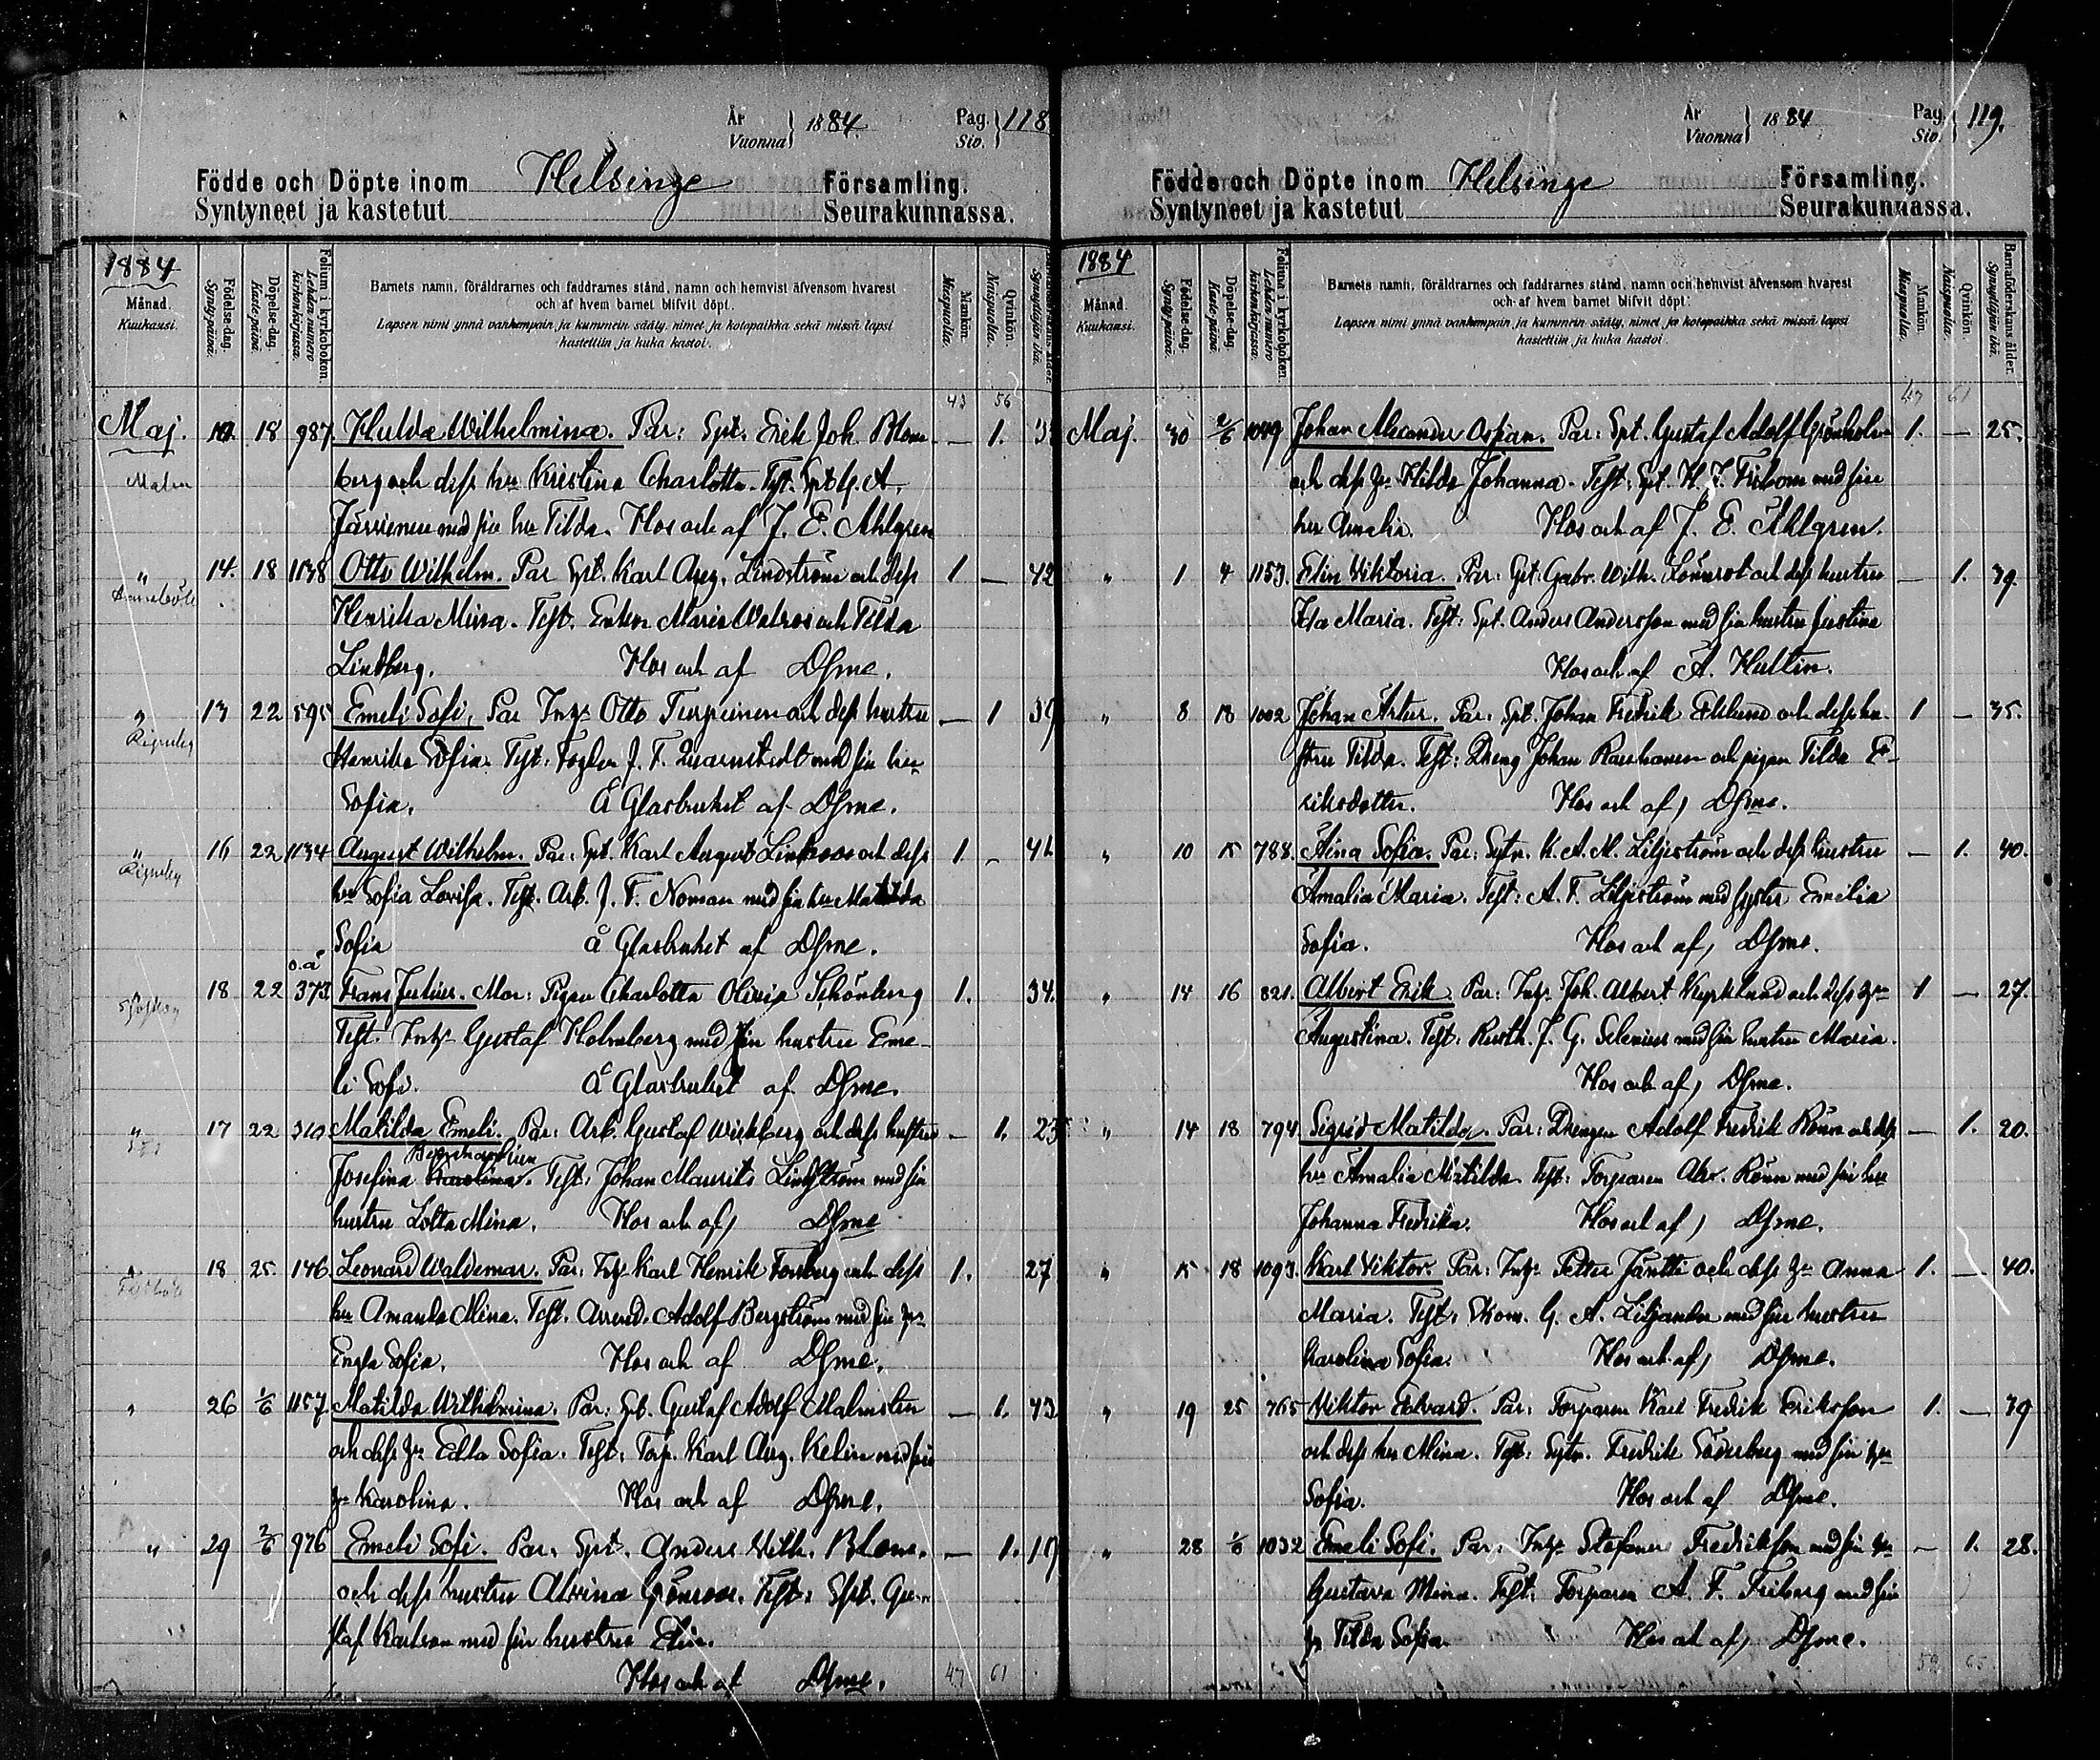 År
Vuonna } 1884.
Pag.
Siv. } 118
Födde och Döpte inom Helsinge Församling.
Syntyneet ja kastetut Seurakunnassa.
1884
Månad.
Kuukausi.
Födelse-dag.
Synty-päivä.
Döpelse-dag.
Kaste-päivä.
Folium i kyrkoboken.
Lehden numero kirkonkirjassa.
Barnets namn, föräldrarnes och faddrarnes stånd, namn och hemvist äfvensom hvarest
och af hvem barnet blifvit döpt.
Lapsen nimi ynnä vanhempain ja kummein sääty, nimet ja kotopaikka sekä missä lapsi
kastettiin ja kuka kastoi.
Mankön.
Miespuolia.
Qvinkön.
Naispuolia.
Synnyttäjän ikä.
43 56
Maj. 18 987 Hulda Wilhelmina. Par: Spt. Erik Joh. Blom- — 1.
Malm berg och dess hu Kristina Charlotta. Test. Spt G. A.
Järvinen med sin hu Tilda. Hos och af J. E. Ahlgren
" 14. 18 1138 Otto Wilhelm. Par Spt. Karl Aug. Lindström och dess 1 — 42
Henrika Mina. Test. Enkan Maria Walros och Tilda
Lindberg. Hos och af Dsme.
13 22 595 Emeli Sofi, Par Inhs Otto Turpeinen och dess hustru — 1 39
Henrika Sofia. Test. J. F. Qvarnstedt med sin hu
Sofia. Å Glasbruket af Dsme.
" 16 22 1134 August Wilhelm. Par: Spt. Karl August Lindroos och dess 1. -
hu Sofia Lovisa. Test. Arb. J. F. Noman med sin hu Matilda
Sofia Å Glasbruket af Dsme.
o.ä
18 22 373 Frans Julius. Mor: Pigan Charlotta Olivia Schönberg 1. 34.
Test. Inhs Gustaf Holmberg med sin hustru Eme-
li Sofi. Å Glasbruket af Dsme.
" 17 22 310 Matilda Emeli. Par: Arb. Gustaf Wickberg och dess hustru — 1. 23
Josefina Karolina. Test. Johan Maurits Lindström med sin
hustru Lotta Mina. Hos och af, Dsme
" 18 25. 146 Leonard Waldemar. Par. Inhs Karl Henrik Forsberg och dess 1. 27
hu Amanda Mina. Test. Arrend. Adolf Bergström med sin hu
Engla Sofia. Hos och af Dsme.
" 26 1/6 1157 Matilda Wilhelmina. Par: Spt. Gustaf Adolf Malmsten — 1. 43
och dess hu Edla Sofia. Test: Torp. Karl Aug. Kelin med sin
hu Karolina. Hos och af Dsme.
" 29 2/6 976 Emeli Sofi. Par. Spt. Anders Wilh. Blom. — 1. 19
och dess hustru Alvina Grönroos. Test: Spt. Gu-
staf Karlson med sin hustru Elin.
Hos och af Dsme.
47 61
År
Vuonna } 1884
Pag.
Siv. } 119.
Födde och Döpte inom Helsinge Församling.
Syntyneet ja kastetut Seurakunnassa.
1884
Månad.
Kuukausi.
Födelse-dag.
Synty-päivä.
Döpelse-dag.
Kaste-päivä.
Folium i kyrkoboken.
Lehden numero kirkonkirjassa.
Barnets namn, föräldrarnes och faddrarnes stånd, namn och hemvist äfvensom hvarest
och af hvem barnet blifvit döpt.
Lapsen nimi ynnä vanhempain ja kummein sääty, nimet ja kotopaikka sekä missä lapsi
kastettiin ja kuka kastoi.
Mankön.
Miespuolia.
Qvinkön.
Naispuolia.
Barnaföderskans ålder.
Synnyttäjän ikä.
47 61
Maj. 30 2/6 1049 Johan Alexander Oskar. Par: Spt. Gustaf Adolf Grönholm 1. — 25.
och dess hu Hilda Johanna. Test: Spt. H. J. Fribom med sin
hu Amalia. Hos och af J. E. Ahlgren.
" 1 4 1153. Elin Viktoria. Par: Spt. Gabr. Wilh. Lönnrot och dess hustru — 1. 39.
Ida Maria. Test: Spt. Anders Andersson med sin hustru Justina
Hos och af A. Hultin.
" 8 18 1002 Johan Artur. Par: Spt. Johan Fredrik Eklund och dess hu- 1 — 35.
stru Tilda. Test: Dreng Johan och pigan Tilda E-
riksdotter. Hos och af, Dsme.
" 10 15 788. Aina Sofia. Par: Sytn. K. A. M. Liljeström och dess hustru — 1. 40.
Amalia Maria. Test: A. F. Liljeström med syster Emelia
Sofia. Hos och af, Dsme.
" 14 16 821. Albert Erik. Par: Inhs Joh. Albert Kyrklund och dess hu 1 — 27.
Augustina. Test: Rusth. J. G. Selenius med sin hustru Maria.
Hos och af, Dsme.
" 14 18 794. Sigrid Matilda. Par: Drengen Adolf Fredrik Rönn och dess — 1. 20.
hu Amalia Matilda. Test: Torparen Abr. Rönn med sin hu
Johanna Fredrika. Hos och af, Dsme.
" 15 18 1093. Karl Viktor. Par: Inhs Petter Jäntti och dess hu Anna 1. — 40.
Maria. Test: Skom. G. A. Liljander med sin hustru
Karolina Sofia. Hos och af, Dsme.
" 19 25 765 Viktor Edvard. Par: Torparen Karl Fredrik Eriksson 1. — 39
och dess hu Mina. Test: Sytn. Fredrik Söderberg med sin hu
Sofia. Hos och af Dsme.
" 28 1/6 1032 Emeli Sofi. Par: Inhs Stefanus Fredriksson med sin hu — 1. 28.
Gustava Mina. Test: Torparen A. F. Friberg med sin
hu Tilda Sofia. Hos och af, Dsme.
52 65